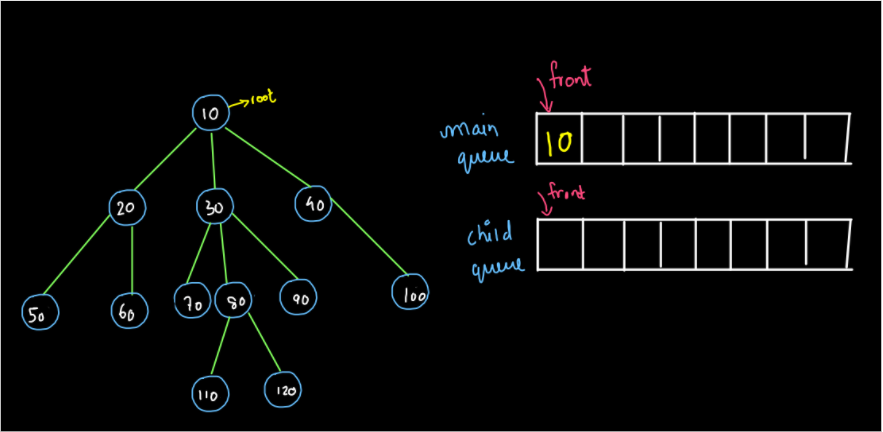 10 → root
20 30 40
50 60 70 80 90 100
110 120
front
main
queue
10
front
child
queue